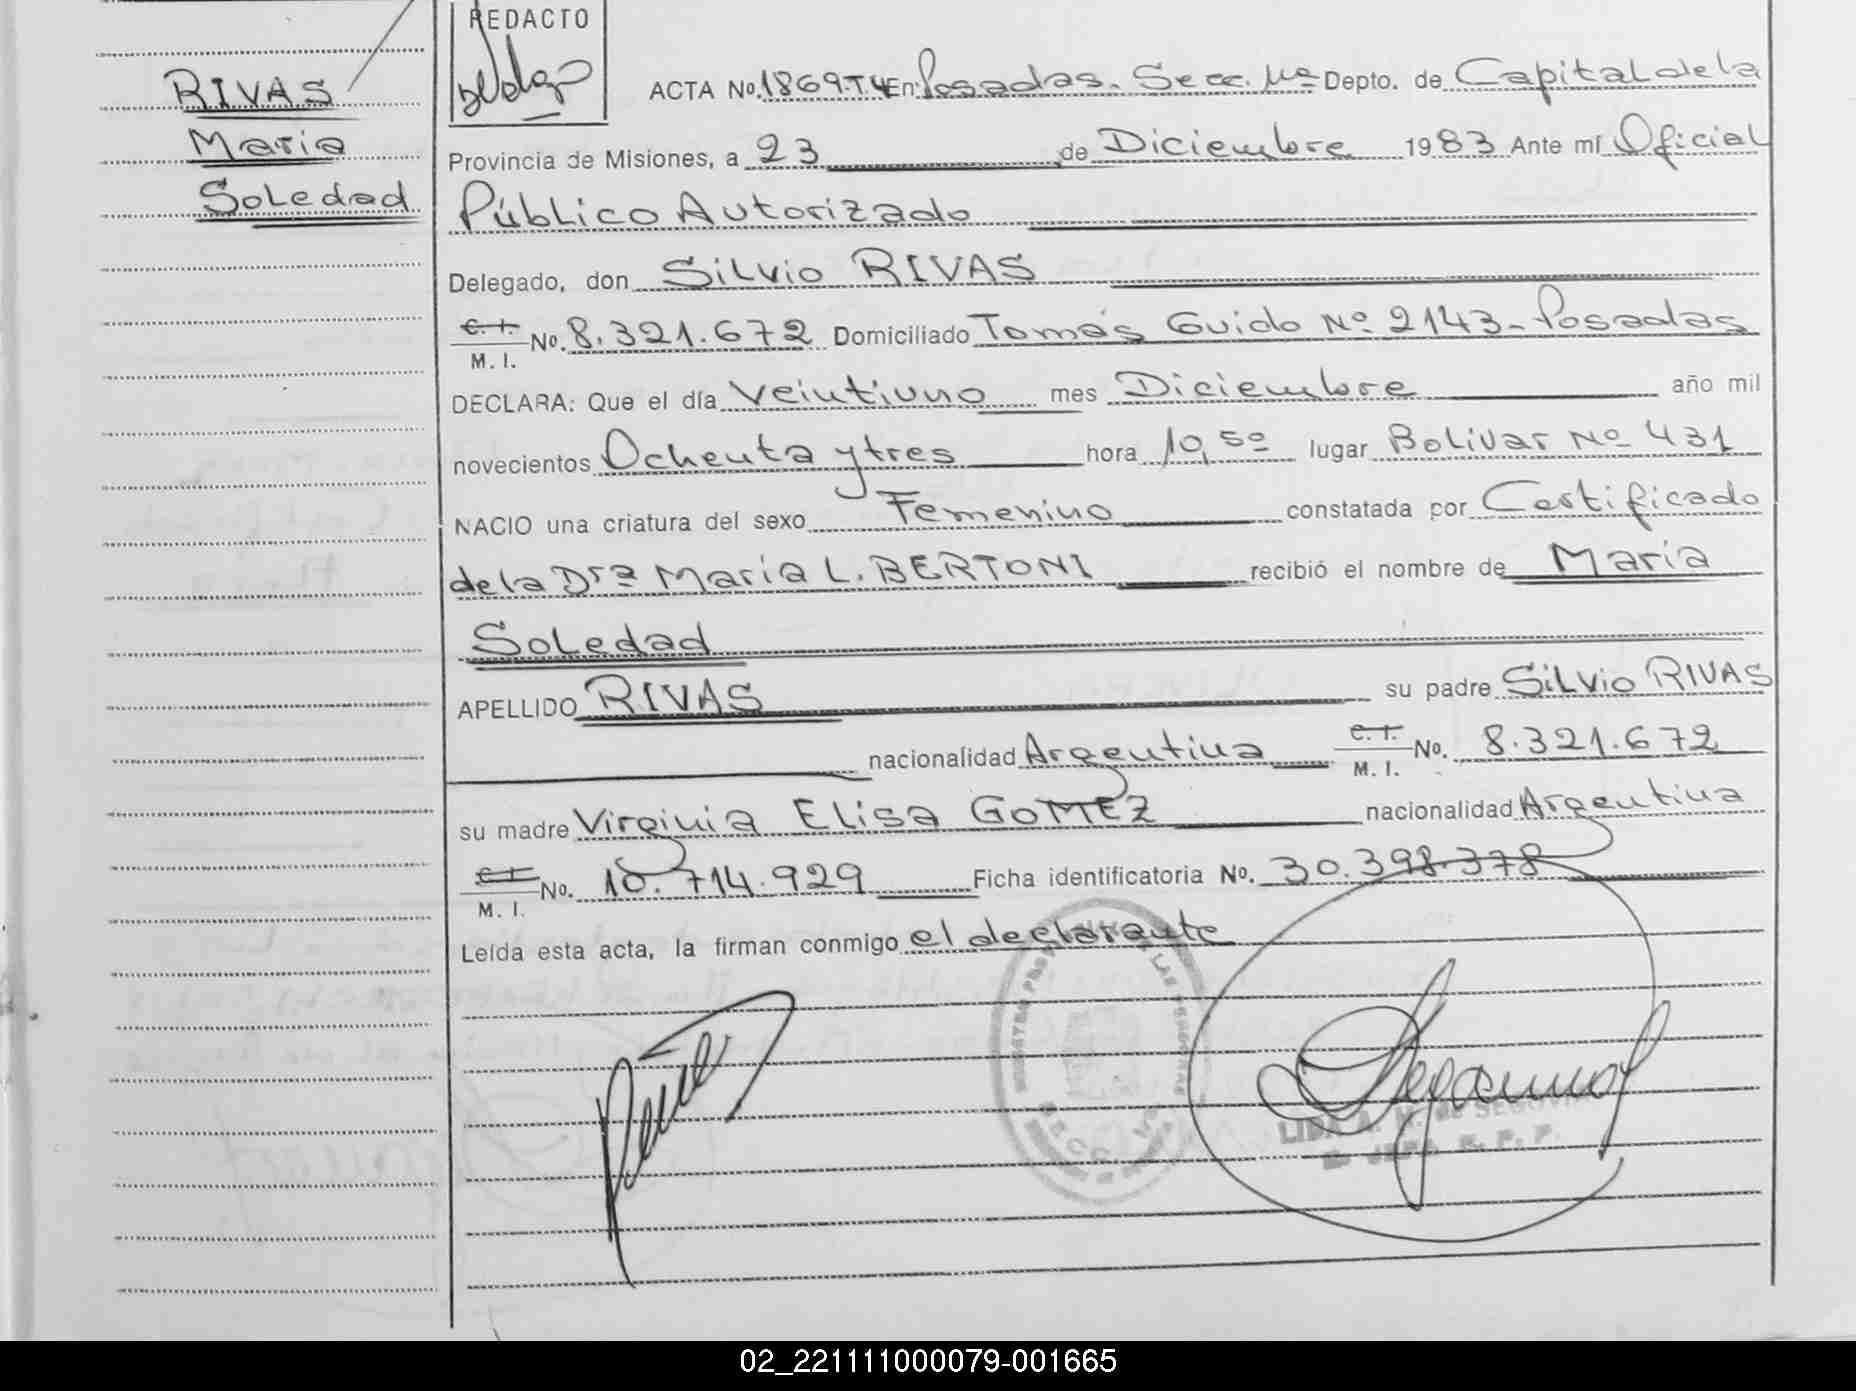 REDACTO
RIVAS
Maria
Soledad
ACTA No. 1869.T4 En: Posadas. Secc. 11ª Depto. de Capital de la
Provincia de Misiones, a 23 de Diciembre 1983 Ante mí Oficial
Público Autorizado
Delegado, don Silvio RIVAS
C. I. M. I. No. 8.321.672 Domiciliado Tomás Guido Nº 2143 - Posadas
DECLARA: Que el día Veintiuno mes Diciembre año mil
novecientos Ochenta y tres hora 10,50 lugar Bolivar Nº 431
NACIO una criatura del sexo Femenino constatada por Certificado
de la Drª María L. BERTONI recibió el nombre de María
Soledad
APELLIDO RIVAS su padre Silvio RIVAS
nacionalidad Argentina C. I. M. I. No. 8.321.672
su madre Virginia Elisa GOMEZ nacionalidad Argentina
C. I. M. I. No. 10.714.929 Ficha identificatoria No. 30.398.378
Leída esta acta, la firman conmigo el declarante
DE LAS PERSONAS
SEGOVIA
JEFA R. P. P.
02_221111000079-001665